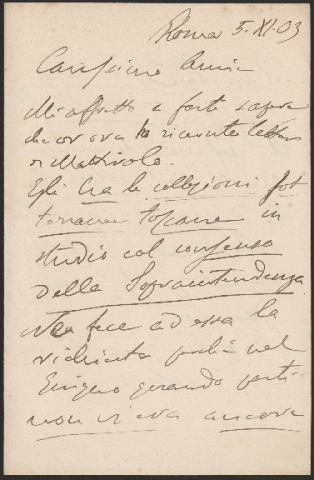 Roma 5.XI.03
Carissimo Amico
Mi affretto a farti sapere
che or ora ho ricevuto lettera
di Mattirolo.
Egli ha le collezioni
toscane in
studio col consenso
della Sopraintendenza
Ne fece ad essa la
richiesta nel
Giugno quando
non vi era ancora